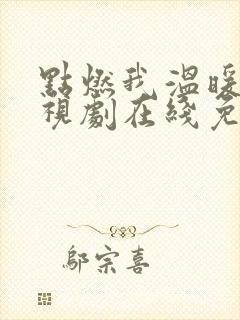 點燃我 溫暖
視劇在綫免
鄔宗喜